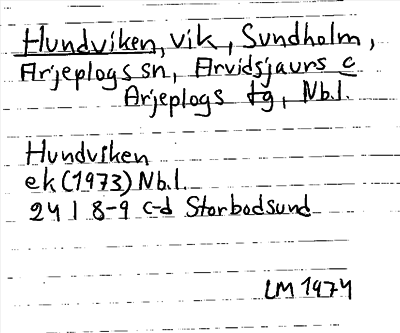 Hundviken, vik, Sundholm,
Arjeplogs sn, Arvidsjaurs c
Arjeplogs tg, Nb.l.
Hundviken
ek (1973) Nb.l.
24 I 8-9 c-d Storbodsund
LM 1974